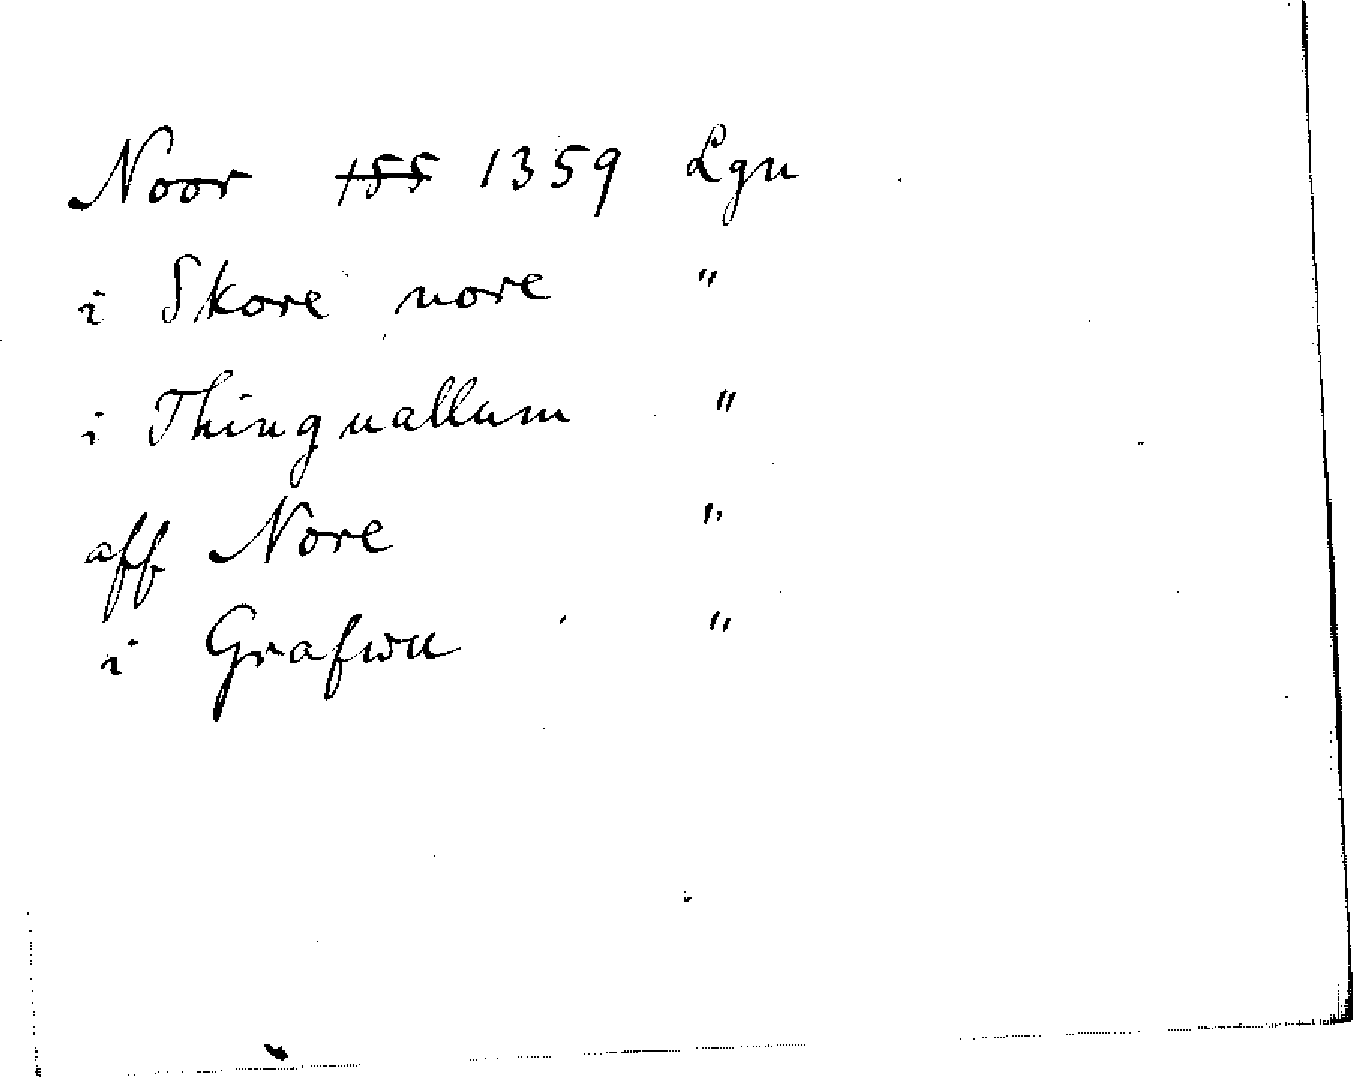 Noor 155 1359 Lgn
i Skore nore "
i Thinguallum "
aff Nore "
i Grafwu "